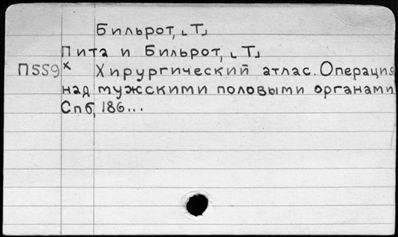 Бильрот, [Т]
Пита и Бильрот, [Т]
П559 х Хирургический атлас. Операция
над мужскими половыми органами
Спб, 186...